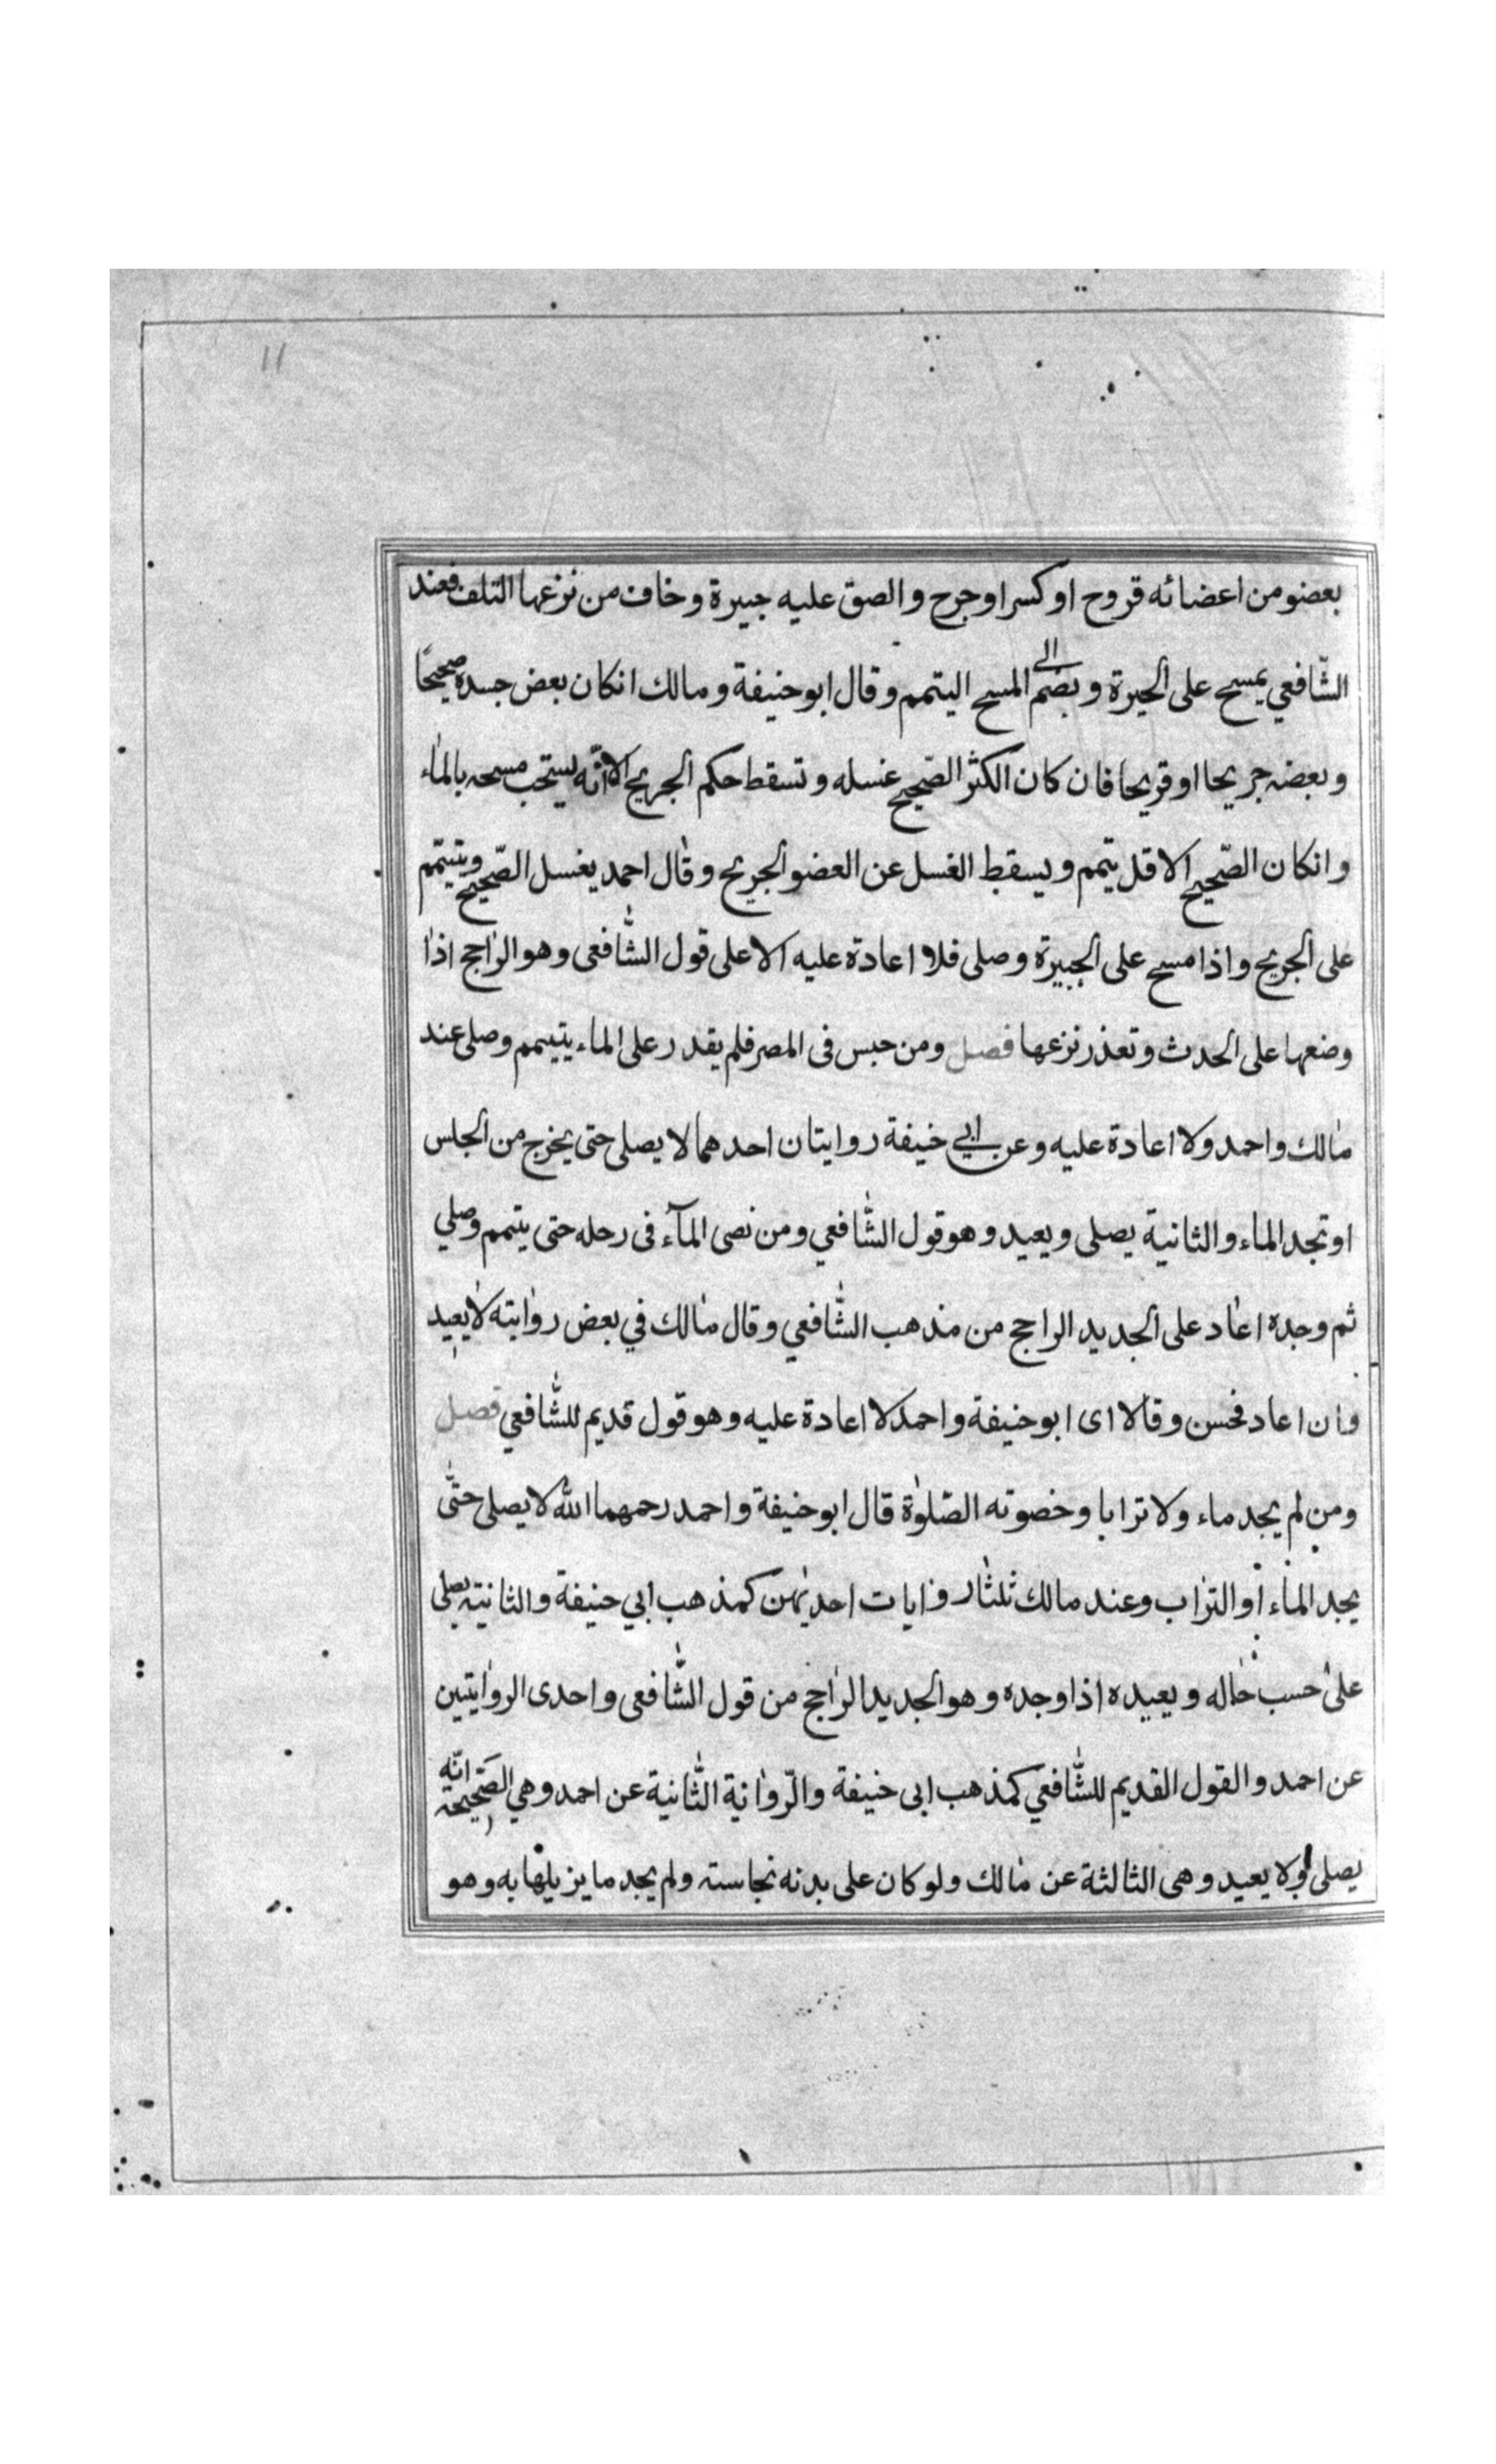 11
بعضو من اعضائه قروح او كسر او جرح والصق عليه جبيرة وخاف من نزعها التلف فعند
الشّافعي يمسح على الجبرة ويضم الى المسح اليتمم وقال ابو حنيفة ومالك انكان بعض جسده صحيحًا
وبعضه جريحا او قريحا فان كان الكثر الصّحيح غسله وتسقط حكم الجريح الا انّه يستحب مسحه بالماء
وانكان الصّحيح الاقل يتمم ويسقط الغسل عن العضو الجريح وقال احمد يغسل الصّحيح ويتيمّم
على الجريح واذا مسح على الجبيرة وصلى فلا اعادة عليه الا على قول الشّافعى وهو الراجح اذا
وضعها على الحدث وتعذر نزعها فصل ومن حبس فى المصر فلم يقدر على الماء يتيمم وصلى عند
مالك واحمد ولا اعادة عليه وعن ابي خنيفة روايتان احدهما لا يصلى حتى يخرج من الجلس
او تجد الماء والثانية يصلى ويعيد وهو قول الشّافعي ومن نصى المآء فى رحله حتى يتمم وصلي
ثم وجده اعاد على الجديد الراجح من مذهب الشّافعي وقال مالك في بعض روايته لا يعيد
وان اعاد فحسن وقالا اى ابو حنيفة واحمد لا اعادة عليه وهو قول قديم للشّافعي فصل
ومن لم يجد ماء ولا ترابا وخصوته الصّلوٰة قال ابو حنيفة واحمد رحمهما الله لا يصلى حتّى
يجد الماء او التراب وعند مالك ثلثا روايات احديهن كمذهب ابي حنيفة والثانية يصلى
على حسب حاله ويعيده اذا وجده وهو الجديد الراجح من قول الشّافعى واحدى الروايتين
عن احمد والقول القديم للشّافعي كمذهب ابى خنيفة والرّوانة الثّانية عن احمد وهي الصّحيحة انّه
يصلى ولا يعيد وهى الثالثة عن مالك ولو كان على بدنه نجاسة ولم يجد ما يزيلها به وهو